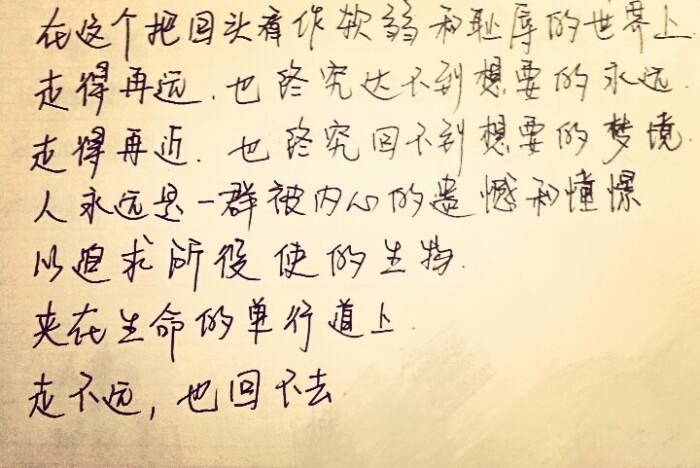 在这个把回头看作软弱和耻辱的世界上
走得再远.也终究达不到想要的永远.
走得再近.也终究回不到想要的梦境.
人永远是一群被内心的遗憾和憧憬
以迫求所役使的生物.
夹在生命的单行道上.
走不远,也回不去